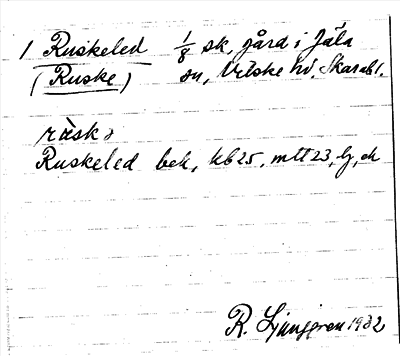 1 Ruskeled 1/8 sk, gård i Jäla
(Ruske) sn, Vilske hd, Skarab l.
rùskə
Ruskeled bek, kb 25, mtt 23, lj, ek
R. Ljunggren 1932